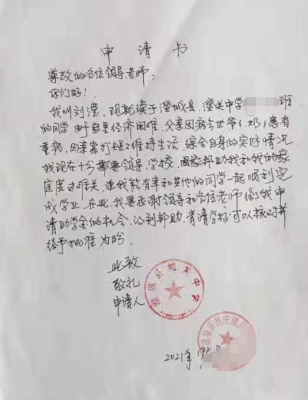 申请书
尊敬的各位领导老师：
你们好！
我叫刘滢，现就读于澄城县，澄迭中学 班
的同学，由于家里经济困难，父亲因病去世，爷奶患有
重病，母亲靠打杂工维持生活，综合自身的实际情况
我现在十分需要领导，学校，国家帮助我和我的家
庭度过难关，让我能有幸和其他的同学一起顺利完
成学业，在此，我要感谢领导和各位老师给我申
请助学金的机会，让利帮助，肯请学校可以核对并
给予批准为盼。
此致
敬礼
申请人
2021年